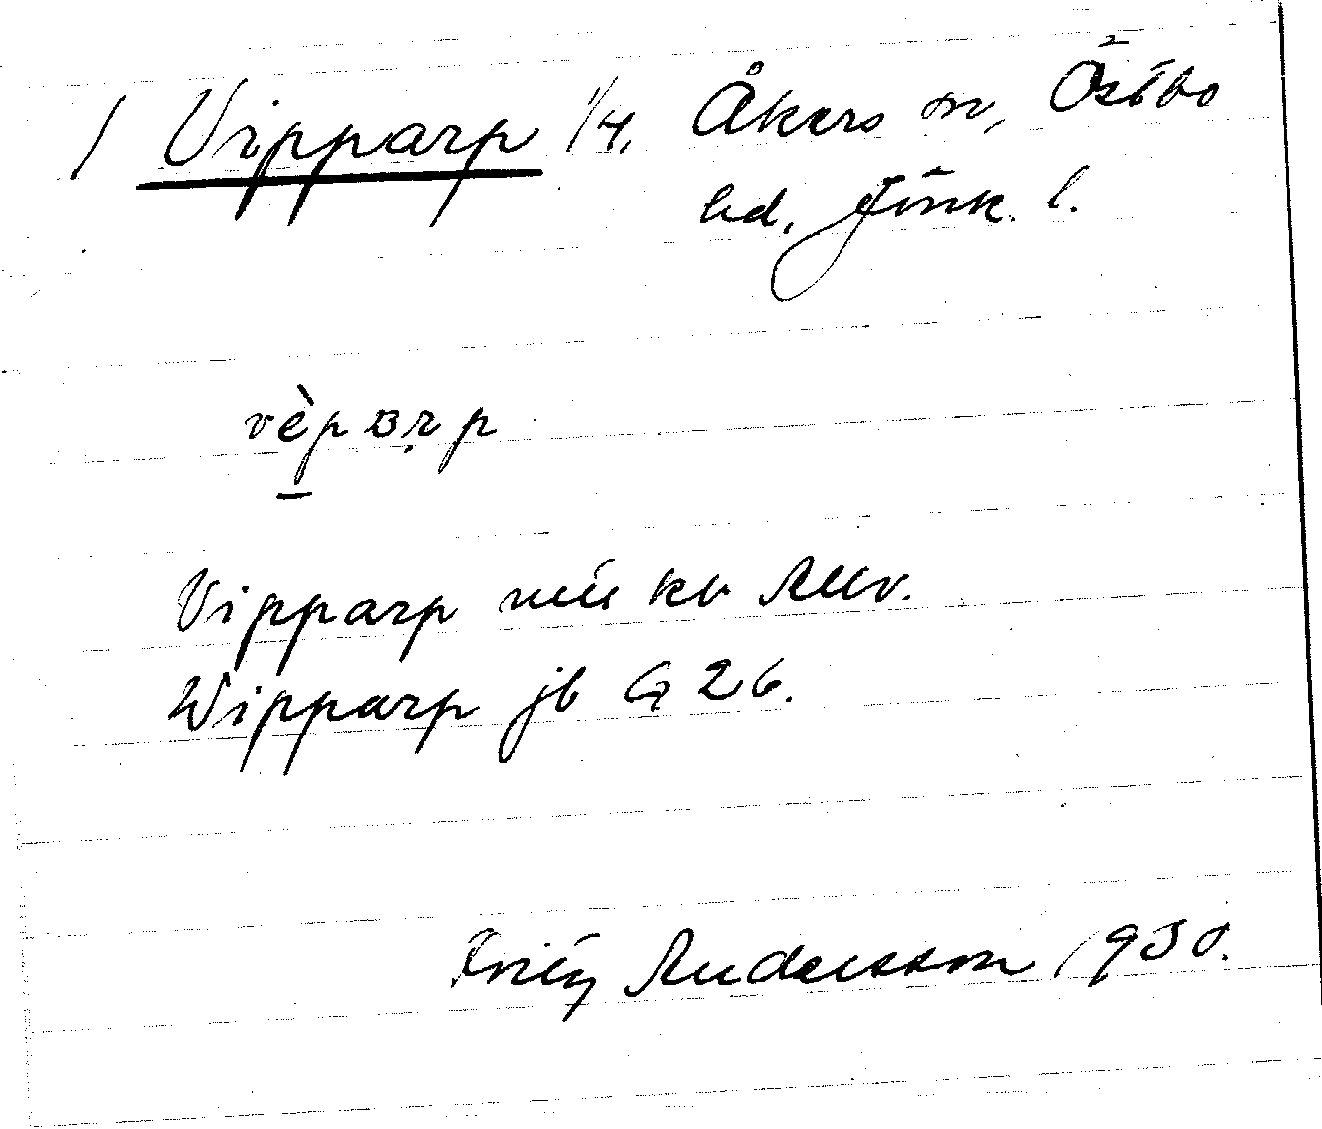 / Vipparp 1/4, Åkers sn, Östbo
hd, Jönk. l.
vèparp
Vipparp
Wipparp jb G 26.
Fritz Andersson 1930.